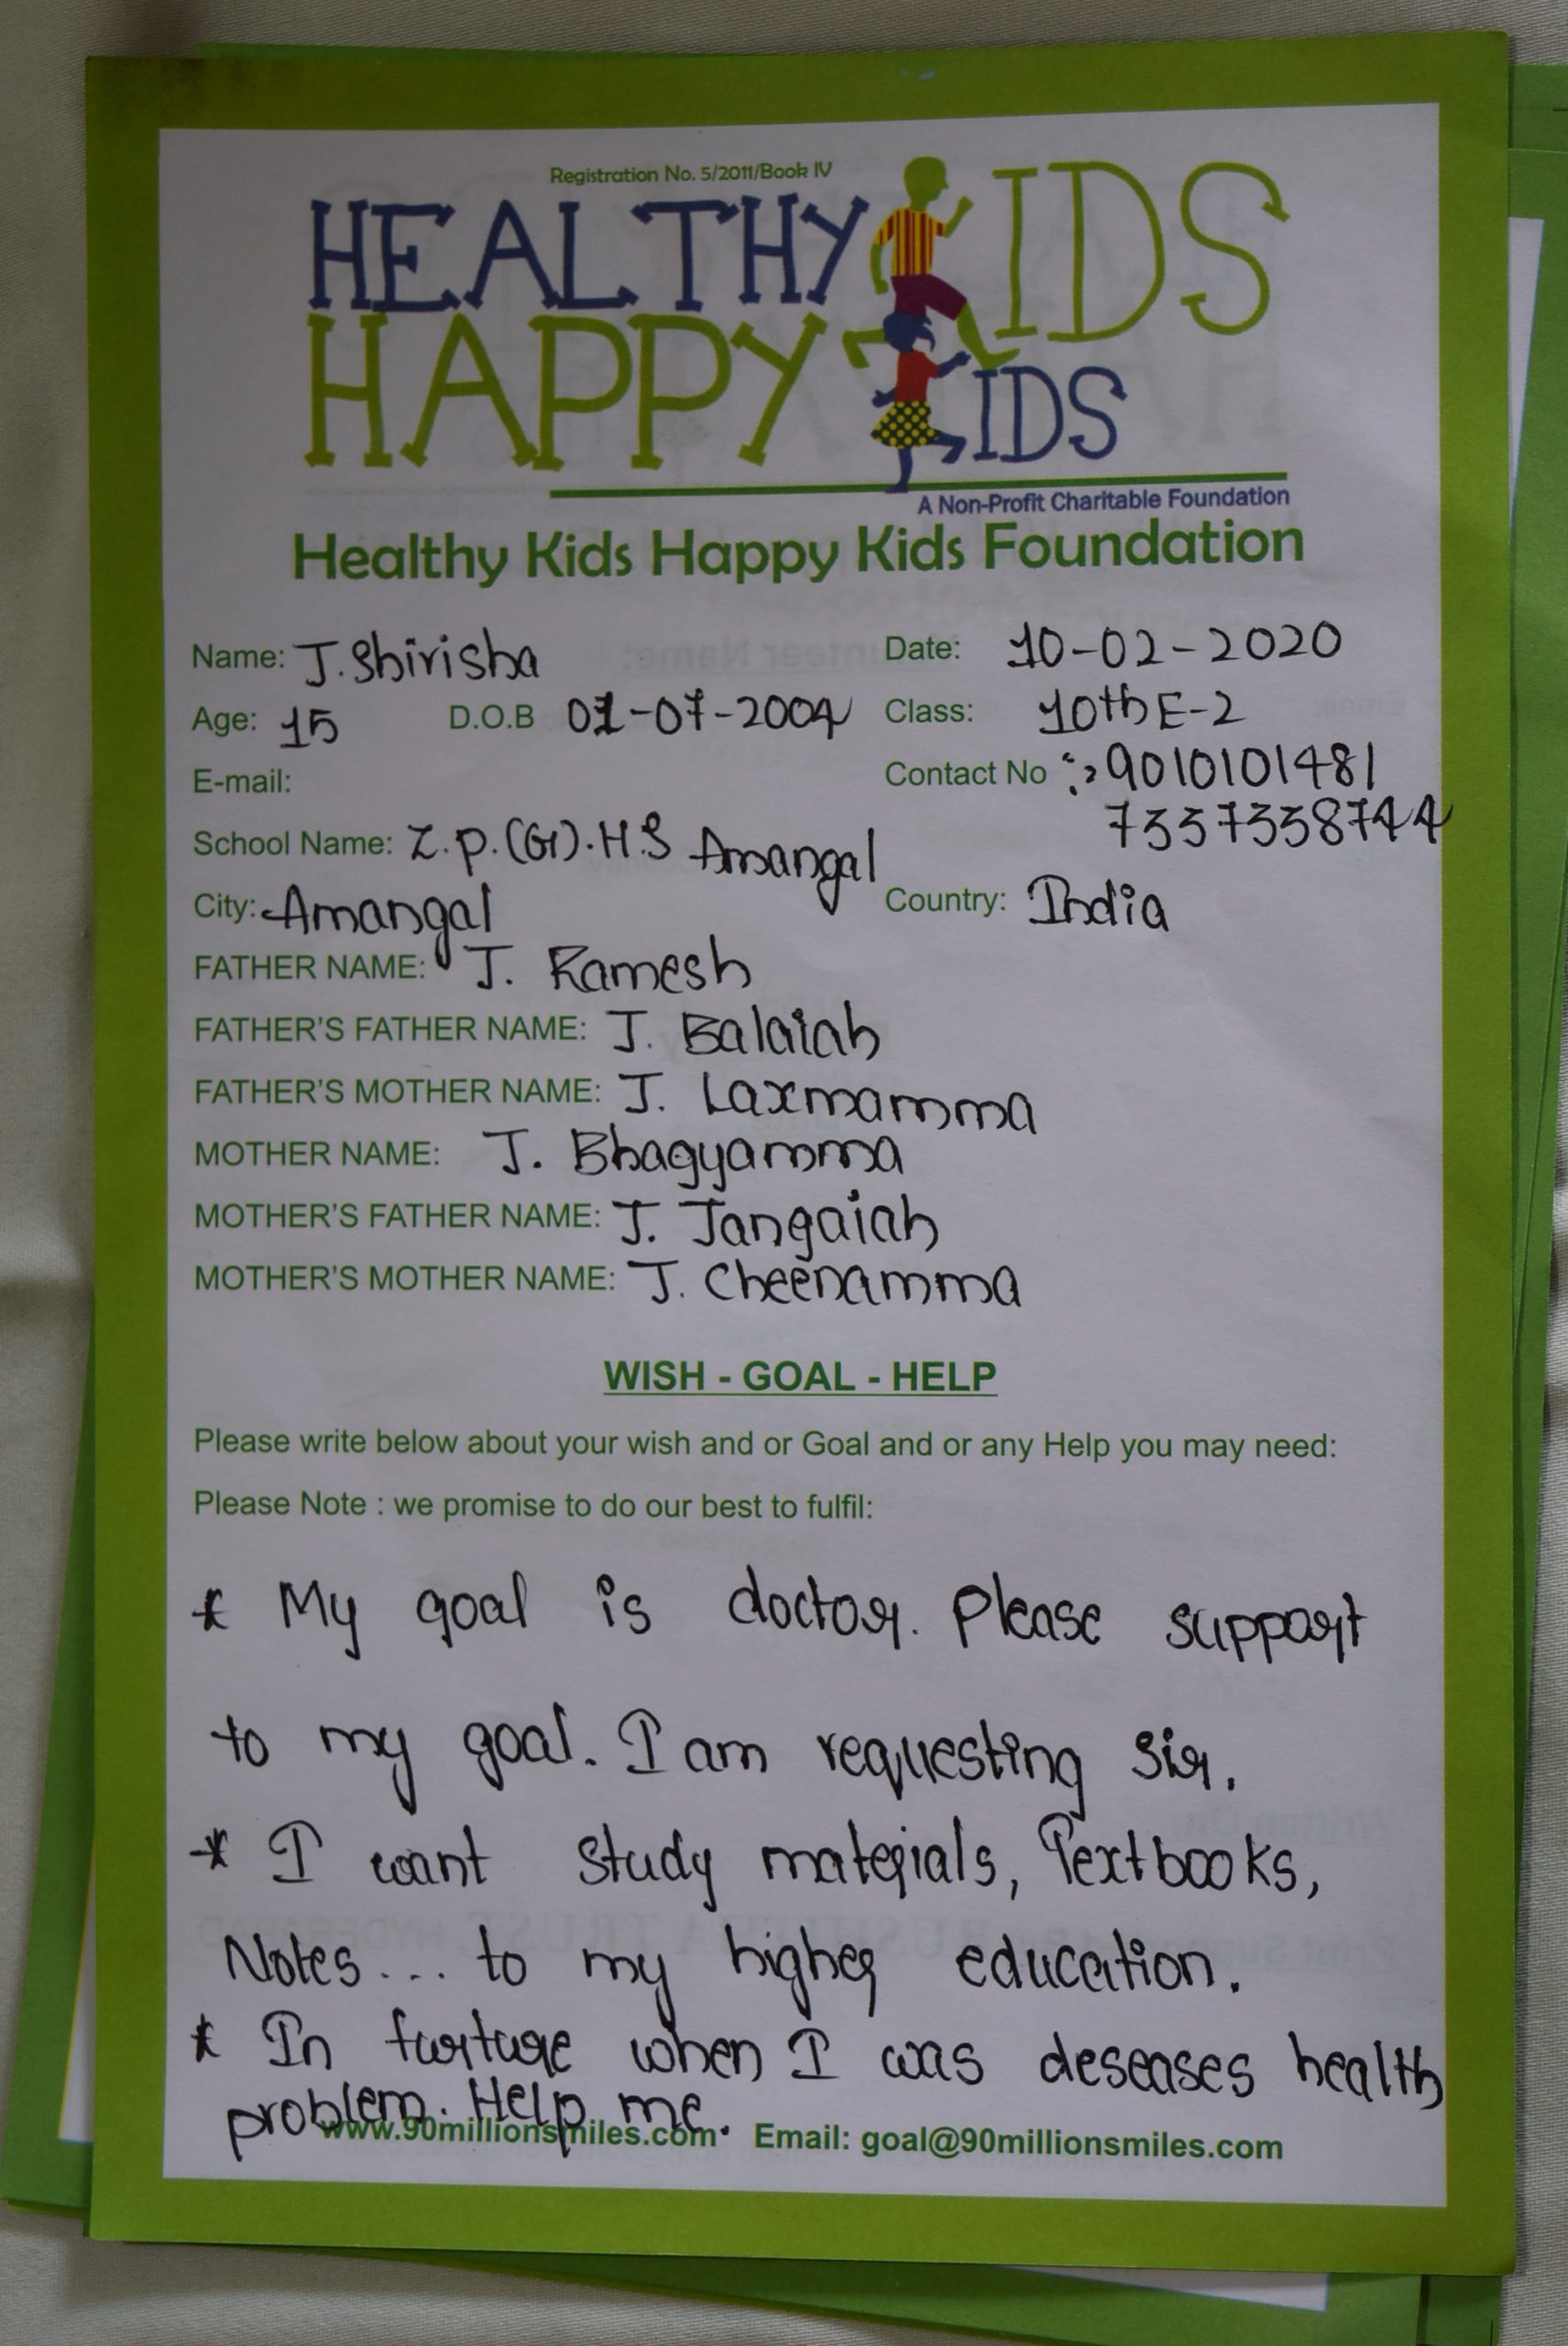 Registration No. 5/2011/Book IV
HEALTHY KIDS
HAPPY KIDS
A Non-Profit Charitable Foundation
Healthy Kids Happy Kids Foundation
Name: J. Shirisha Date: 10-02-2020
Age: 15 D.O.B 01-07-2004 Class: 10th E-2
E-mail: Contact No :, 9010101481
7337338744
School Name: Z.p.(G).H.S Amangal
City: Amangal Country: India
FATHER NAME: J. Ramesh
FATHER'S FATHER NAME: J. Balaiah
FATHER'S MOTHER NAME: J. Laxmamma
MOTHER NAME: J. Bhagyamma
MOTHER'S FATHER NAME: J. Jangaiah
MOTHER'S MOTHER NAME: J. Cheenamma
WISH - GOAL - HELP
Please write below about your wish and or Goal and or any Help you may need:
Please Note : we promise to do our best to fulfil:
* My goal is doctor. Please support
to my goal. I am requesting Sir.
* I want study materials, Textbooks,
Notes... to my higher education.
* In furture when I was deseases health
problem. Help me.
www.90millionsmiles.com Email: goal@90millionsmiles.com